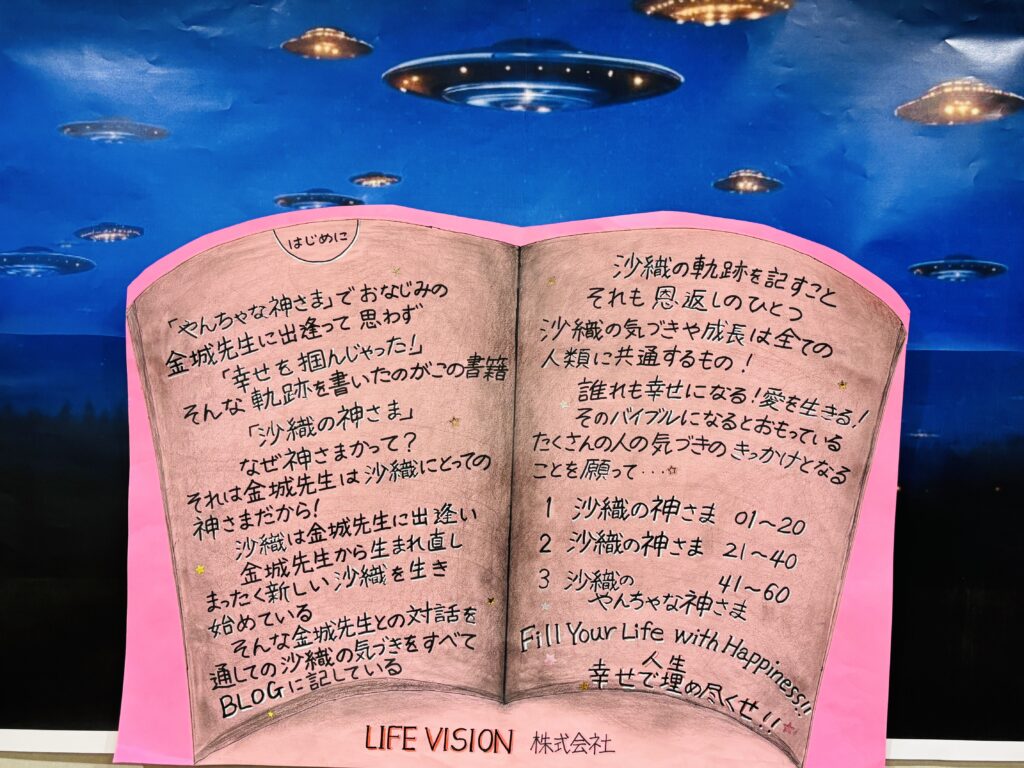 はじめに
「やんちゃな神さま」でおなじみの
金城先生に出逢って 思わず
「幸せを掴んじゃった！」
そんな軌跡を書いたのがこの書籍
「沙織の神さま」
なぜ神さまかって？
それは金城先生は沙織にとっての
神さまだから！
沙織は金城先生に出逢い
金城先生から生まれ直し
まったく新しい沙織を生き
始めている
そんな金城先生との対話を
通しての沙織の気づきをすべて
BLOGに記している
沙織の軌跡を記すこと
それも恩返しのひとつ
沙織の気づきや成長は全ての
人類に共通するもの！
誰れも幸せになる！愛を生きる！
そのバイブルになるとおもっている
たくさんの人の気づきのきっかけとなる
ことを願って・・・☆
1 沙織の神さま 01〜20
2 沙織の神さま 21〜40
3 沙織の 41〜60
やんちゃな神さま
Fill Your Life with Happiness!!
人生
幸せで埋め尽くせ!!
LIFE VISION 株式会社